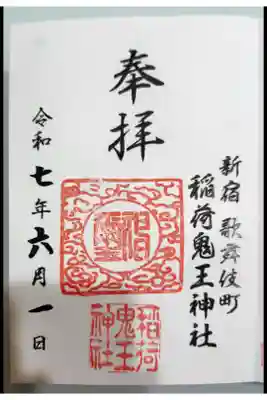 新宿 歌舞伎町
稲荷鬼王神社
奉拝
稲荷
鬼王
神社
令和七年六月一日